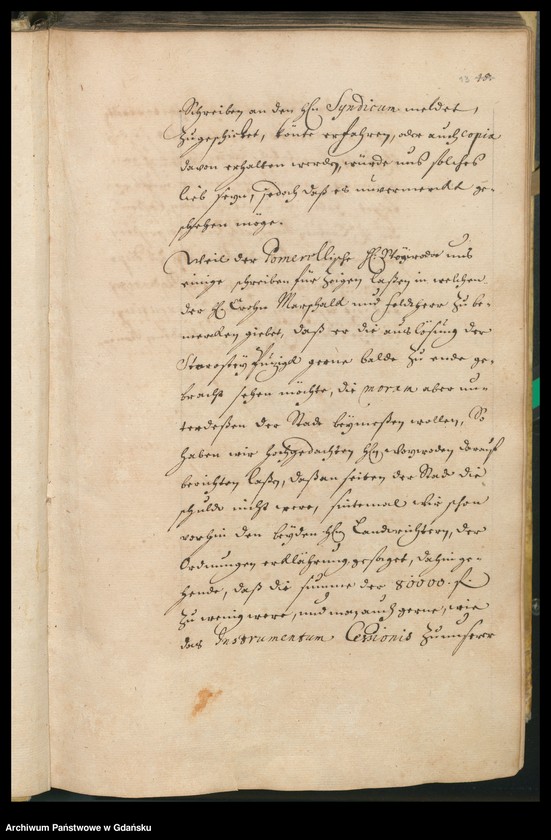 13 181
Schreiben an den Hn Syndicum meldet,
zugeschicket, könte erfahren, oder auch copia
davon erhalten werden, würde uns solches
lieb seyn, jedoch daß es unvermerckt ge-
schehen möge.
Weil der Pomerellische H. Woywode uns
einige schreiben für zeigen laßen in welchen
der H. Crohn Marschalk und Feldherr zu be-
mercken giebet, daß er die auslösung der
Starostey Putzigk gerne balde zu ende ge-
bracht sehen möchte, die moram aber un-
terdeßen der Stadt beymeßen wollen, So
haben wir hochgedachten Hn Woywoden darauf
berichten laßen, daß an seiten der Stadt die
schuldt nicht were, sintemal wir schon
vorhin den beyden Hn Landrichtern, der
Ordnungen erklährung gesaget, dahin ge-
hende, daß die summe der 80000 f.
zu wenig were, und man auch gerne, wie
das Instrumentum Cessionis zu unserer
Archiwum Państwowe w Gdańsku